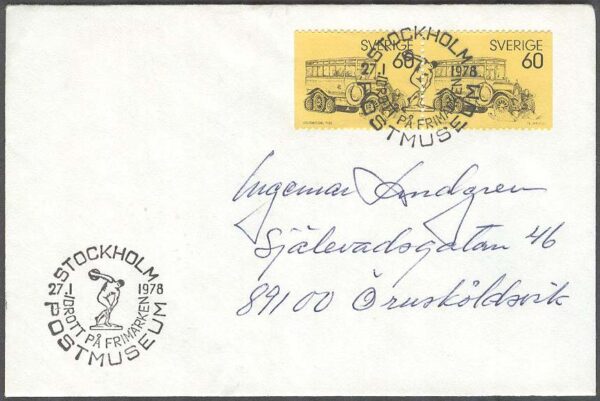 SVERIGE 60
SVERIGE 60
STOCKHOLM
27.1 1978
IDROTT PÅ FRIMÄRKEN
POSTMUSEUM
Ingemar Lindgren
Själevadsgatan 46
89100 Örnsköldsvik
STOCKHOLM
27.1 1978
IDROTT PÅ FRIMÄRKEN
POSTMUSEUM